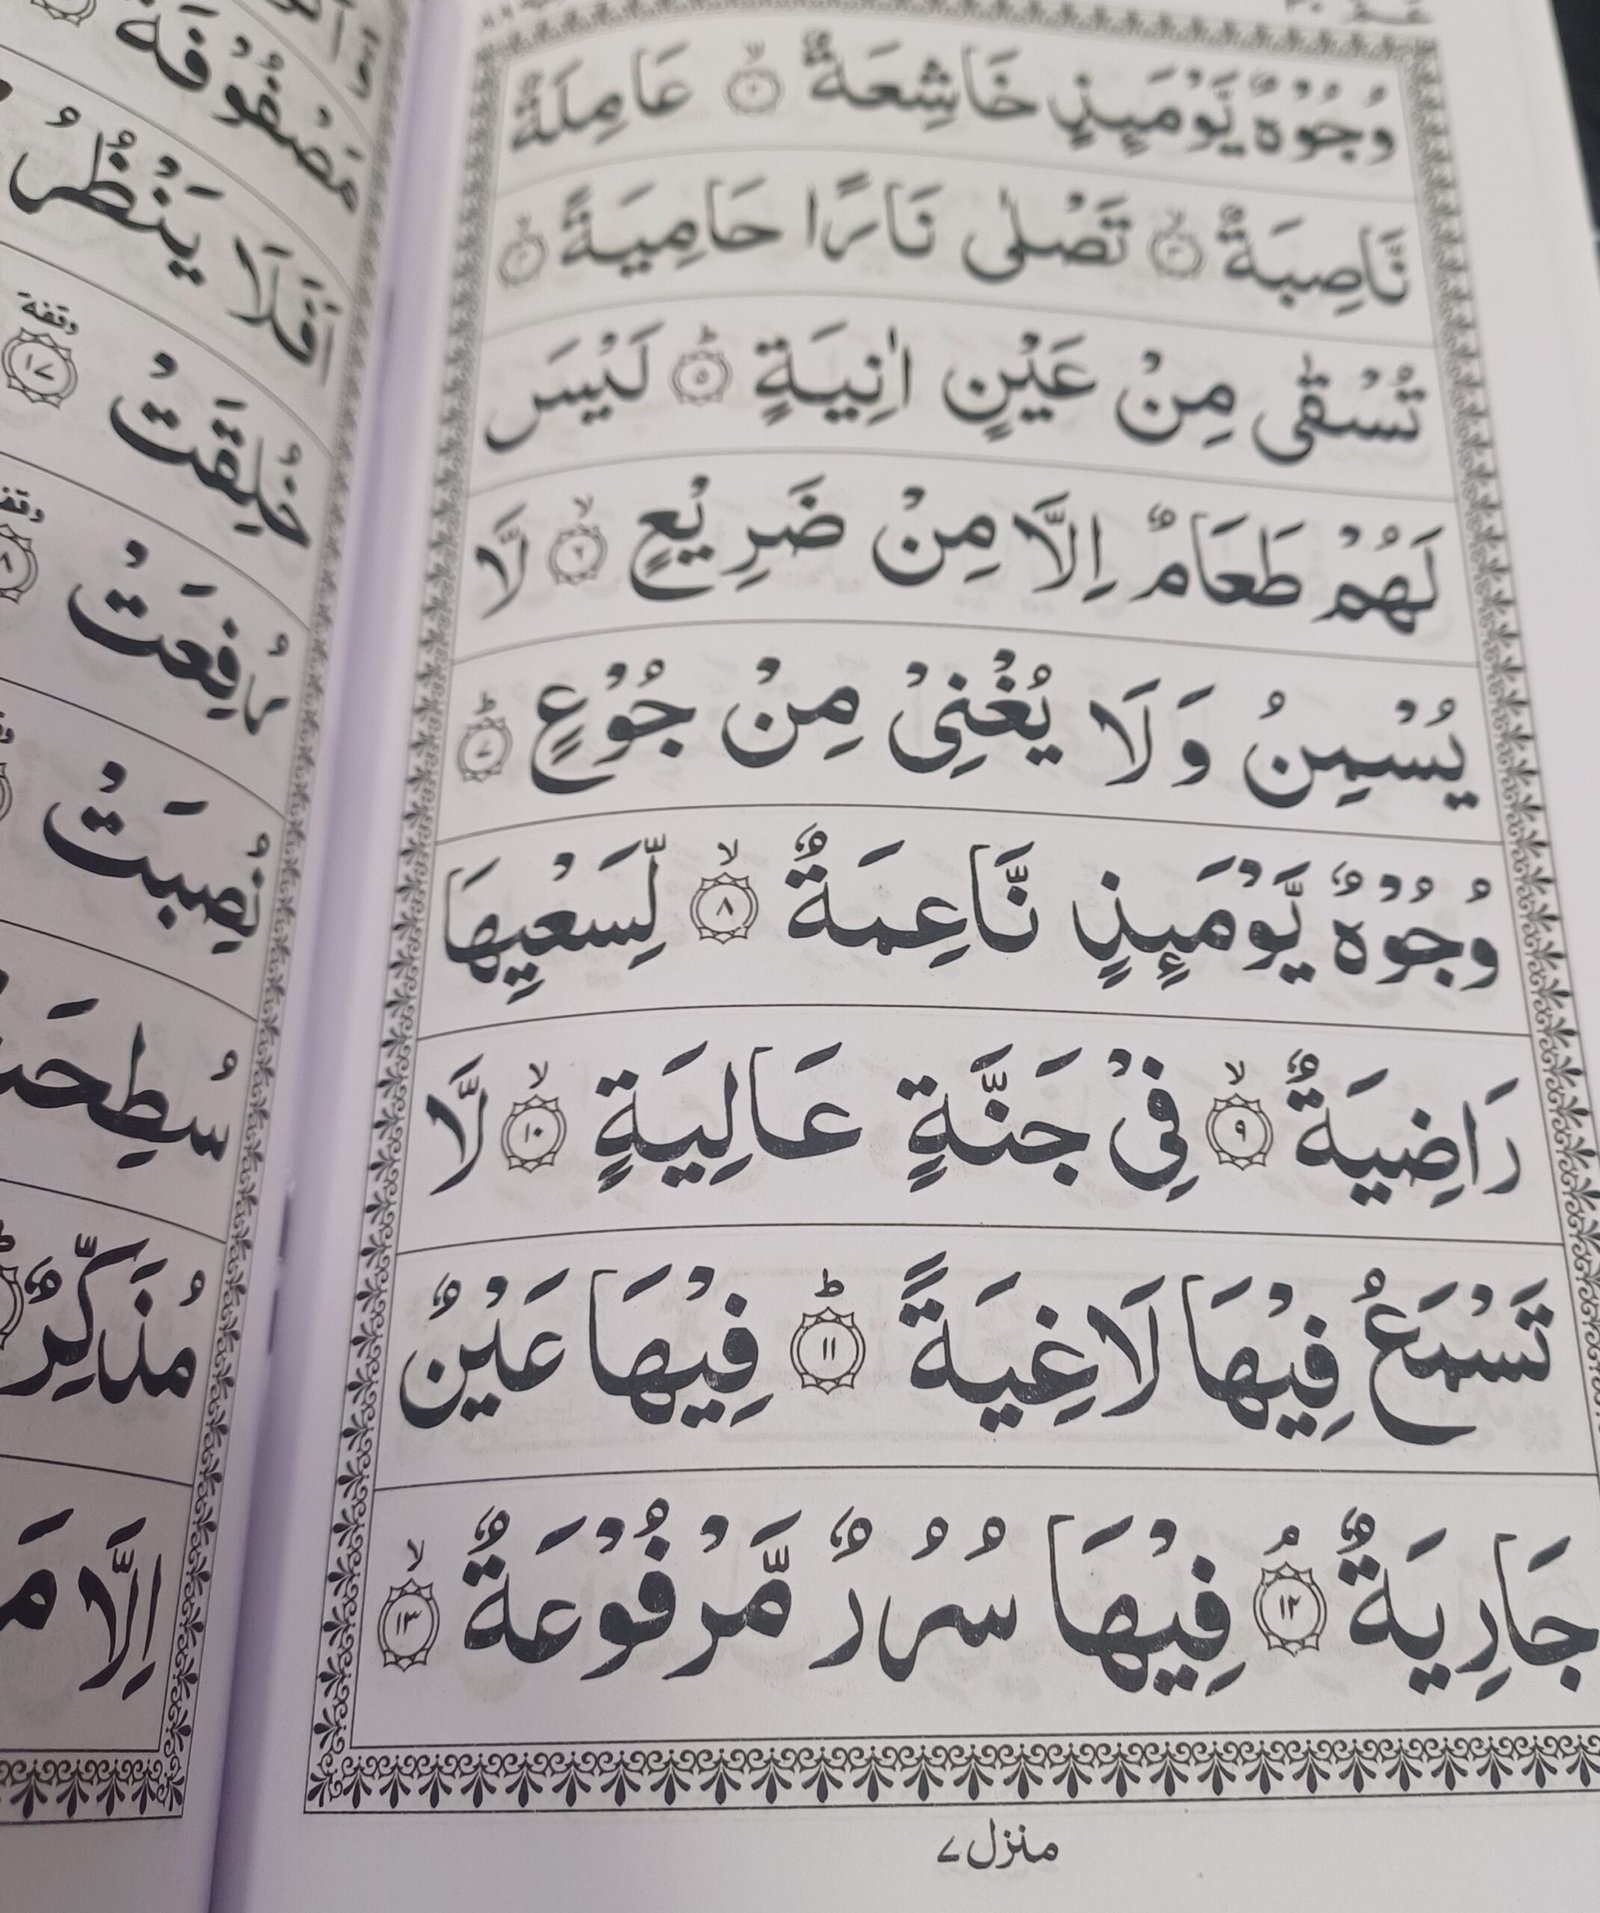 وُجُوْهٌ يَّوْمَىِٕذٍ خَاشِعَةٌ ۙ﴿۲﴾ عَامِلَةٌ
نَّاصِبَةٌ ۙ﴿۳﴾ تَصْلٰى نَارًا حَامِيَةً ۙ﴿۴﴾
تُسْقٰى مِنْ عَيْنٍ اٰنِيَةٍ ؕ﴿۵﴾ لَيْسَ
لَهُمْ طَعَامٌ اِلَّا مِنْ ضَرِيْعٍ ۙ﴿۶﴾ لَّا
يُسْمِنُ وَلَا يُغْنِىْ مِنْ جُوْعٍ ؕ﴿۷﴾
وُجُوْهٌ يَّوْمَىِٕذٍ نَّاعِمَةٌ ۙ﴿۸﴾ لِّسَعْيِهَا
رَاضِيَةٌ ۙ﴿۹﴾ فِىْ جَنَّةٍ عَالِيَةٍ ۙ﴿۱۰﴾ لَّا
تَسْمَعُ فِيْهَا لَاغِيَةً ؕ﴿۱۱﴾ فِيْهَا عَيْنٌ
جَارِيَةٌ ۘ﴿۱۲﴾ فِيْهَا سُرُرٌ مَّرْفُوْعَةٌ ۙ﴿۱۳﴾
منزل ۷
مَصْفُوْفَةٌ
اَفَلَا يَنْظُرُ
خُلِقَتْ وقفة ﴿۱۷﴾
رُفِعَتْ
نُصِبَتْ
سُطِحَتْ
مُذَكِّرٌ
اِلَّا مَ